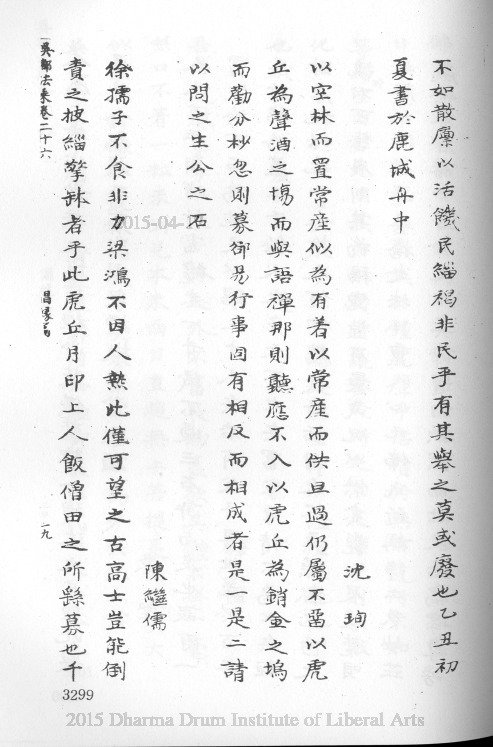 不如散廪以活饑民緇褐非民乎有其舉之莫或廢也乙丑初
夏書於鹿城舟中
沈珣
以空林而置常産似為有着以常産而供旦過仍屬不畱以虎
丘為聲酒之塲而與語禪那則聽應不入以虎丘為銷金之塢
而勸分杪忽則募郤易行事固有相反而相成者是一是二請
以問之生公之石
陳繼儒
徐孺子不食非力梁鴻不因人熱此僅可望之古高士豈能倒
責之披緇擎鉢者乎此虎丘月印上人飯僧田之所繇募也千
吳都法乘卷二十六
昌象
一九
3299
2015-04-1
2015 Dharma Drum Institute of Liberal Arts